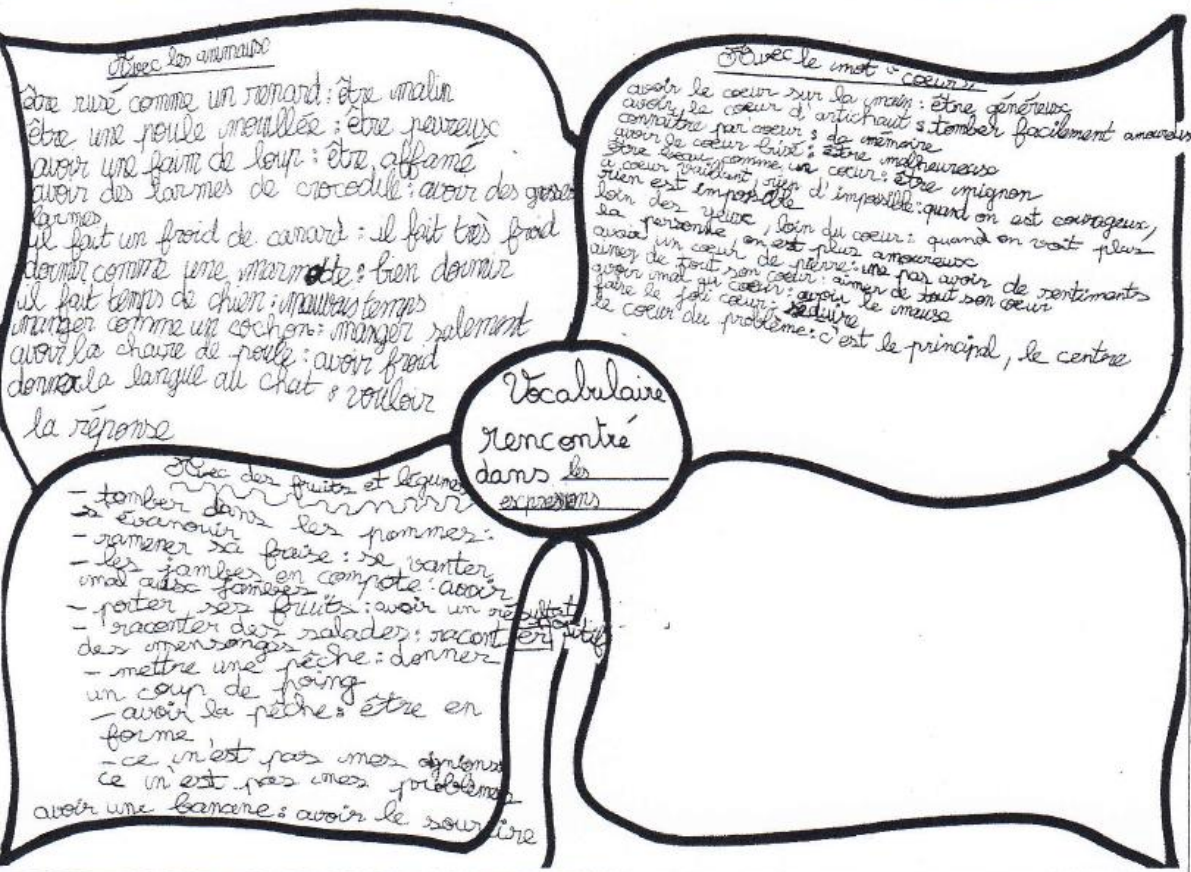 Avec les animaux
être rusé comme un renard : être malin
être une poule mouillée : être peureux
avoir une faim de loup : être affamé
avoir des larmes de crocodile : avoir des grosses
larmes
il fait un froid de canard : il fait très froid
dormir comme une marmotte : bien dormir
il fait temps de chien : mauvais temps
manger comme un cochon : manger salement
avoir la chaire de poule : avoir froid
donner la langue au chat : vouloir
la réponse
Avec le mot "coeur"
avoir le coeur sur la main : être généreux
avoir le coeur d'artichaut : tomber facilement amoureux
connaître par coeur : de mémoire
avoir le coeur brisé : être malheureuse
être beau comme un coeur : être mignon
à coeur vaillant, rien d'impossible : quand on est courageux,
rien est impossible
loin des yeux, loin du coeur : quand on voit plus
la personne on est plus amoureux
avoir un coeur de pierre : ne pas avoir de sentiments
aimer de tout son coeur : aimer de tout son coeur
avoir mal au coeur : avoir le nausé
faire le joli coeur : séduire
le coeur du problème : c'est le principal, le centre
Vocabulaire
rencontré
dans les
expressions
Avec des fruits et légumes
- tomber dans les pommes :
s'évanouir
- ramener sa fraise : se vanter
- les jambes en compote : avoir
mal aux jambes
- porter ses fruits : avoir un résultat
positif
- raconter des salades : raconter
des mensonges
- mettre une pêche : donner
un coup de poing
- avoir la pêche : être en
forme
- ce n'est pas mes oignons
ce n'est pas mes problèmes
avoir une banane : avoir le sourire